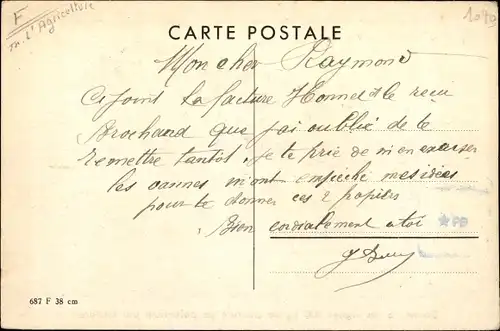 F
M. L'Agriculture
1070
CARTE POSTALE
Mon cher Raymond
Ci joint la facture et le recu
Brochard que j'ai oublié de te
remettre tantot, je te prie de m'en excuser
les vannes m'ont empeché mes idées
pour te donner ces 2 papiers
Bien cordialement a toi
687 F 38 cm